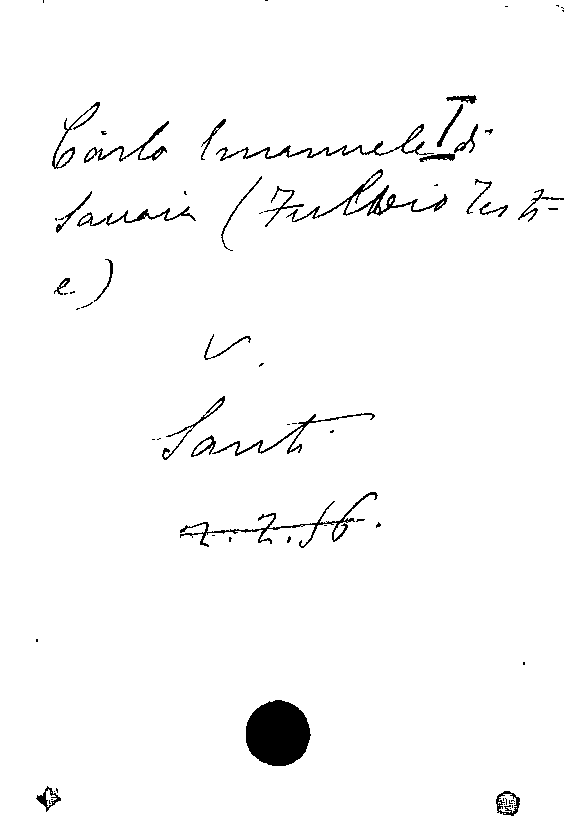 Carlo Emanuele I di
Savoia (Fulvio Testi
e)
V.
Santi
z. z. 56.